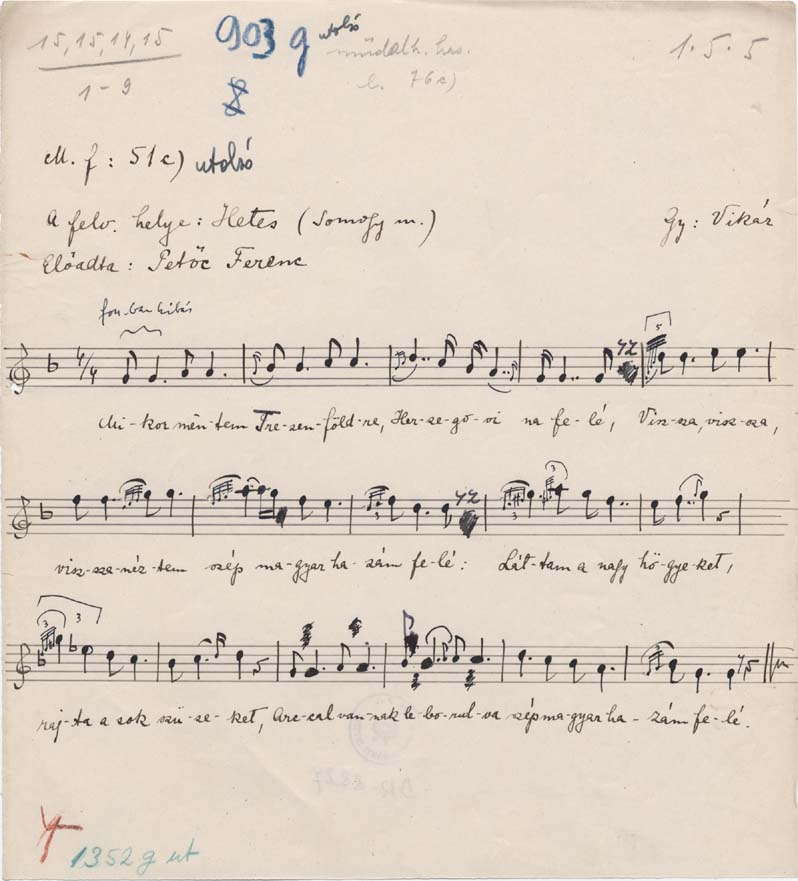 15, 15, 14, 15
1 - 9
903 g utolsó
8
műdalk. has.
76c)
1·5·5
M. f: 51c) utolsó
A felv. helye: Hetes (Somogy m.)
Gy: Vikár
Előadta: Petőc Ferenc
fon.-ban hibás
4/4
5
Mi-kor mën-tem Tre-zen-föld-re, Her-ze-go-vi na fe-lé, Visz-sza, visz-sza,
3 3 3
visz-sza-néz-tem szép ma-gyar ha-zám fe-lé: Lát-tam a nagy hö-gye-ket,
3 3 3
raj-ta a sok szü-ze-ket, Arc-cal van-nak le-bo-rul-va szép ma-gyar ha-zám fe-lé.
1352 g ut